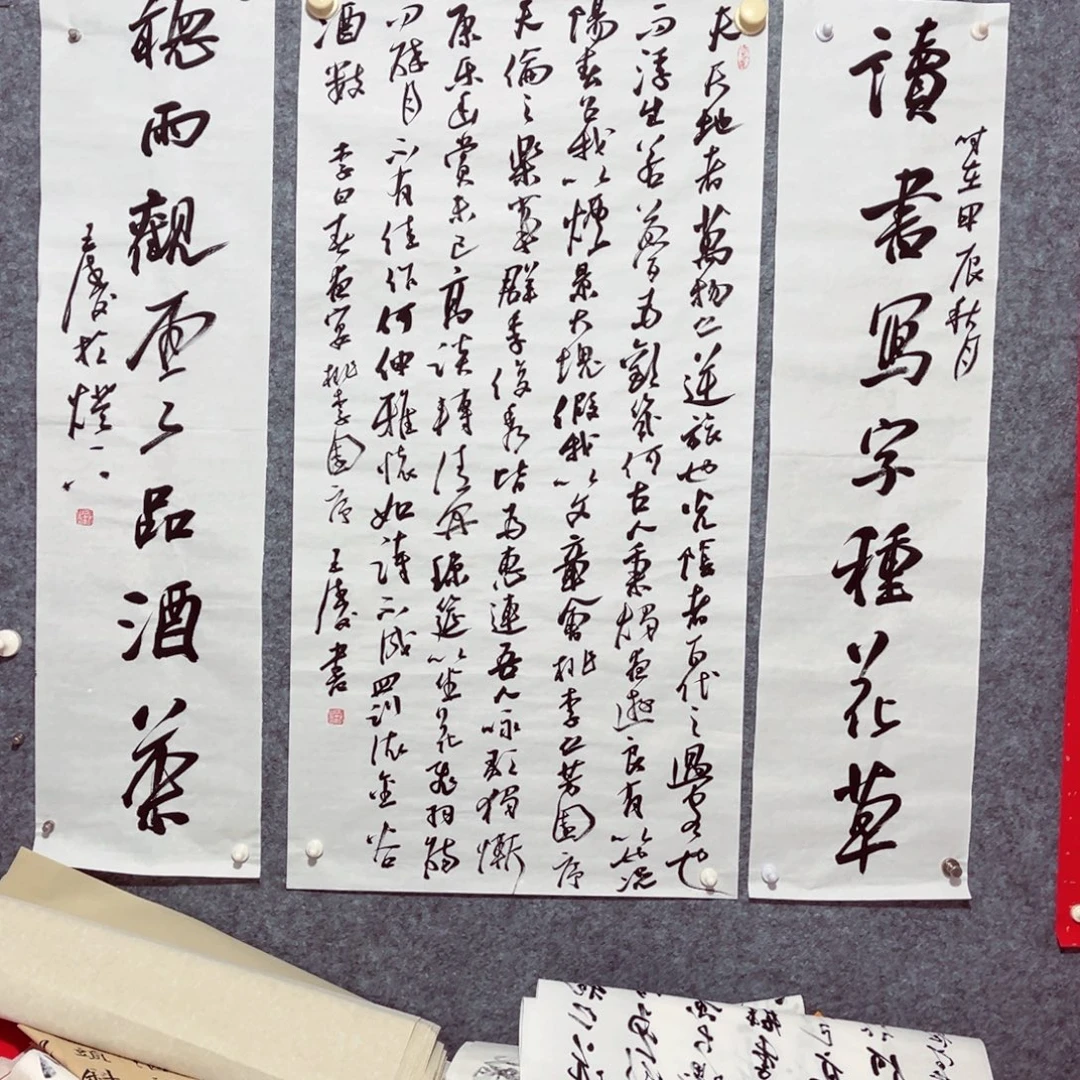 讀書寫字種花草
时在甲辰秋月
夫天地者萬物之逆旅也光陰者百代之過客也
而浮生若夢为歡幾何古人秉燭夜遊良有以也況
陽春召我以煙景大塊假我以文章會桃李之芳園序
天倫之樂事群季俊秀皆为惠連吾人詠歌獨慚
康乐幽賞未已高談轉清開瓊筵以坐花飛羽觴
而醉月不有佳作何伸雅懷如詩不成罰依金谷
酒數 李白春夜宴桃李園序 王 書
聽雨觀雲品酒茶
王 於燈下